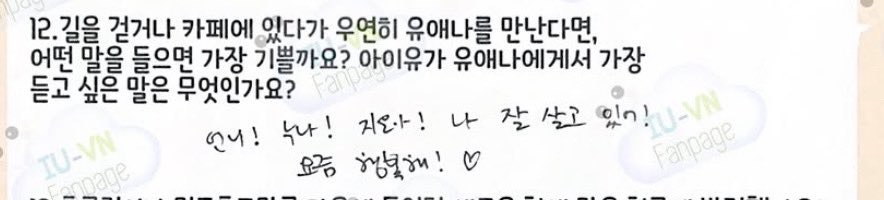 12.길을 걷거나 카페에 있다가 우연히 유애나를 만난다면,
어떤 말을 들으면 가장 기쁠까요? 아이유가 유애나에게서 가장
듣고 싶은 말은 무엇인가요?
언니! 누나! 지은아! 나 잘 살고 있어!
요즘 행복해! ♡
IU-VN
Fanpage
IU-VN
Fanpage
Fanpage